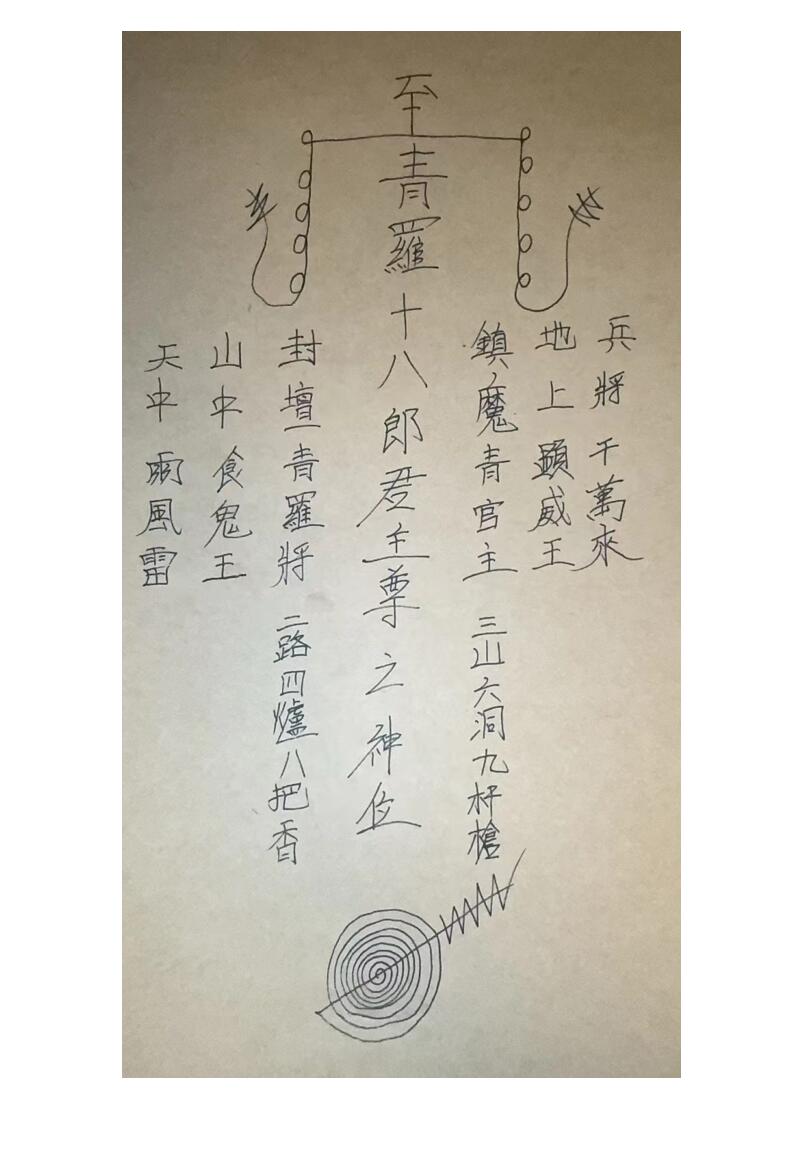 兵將千萬來
地上顯威王
鎮魔青官主 三山六洞九杆槍
至
青羅十八郎君主尊之神位
封壇青羅將 二路四爐八把香
山中食鬼王
天中雨風雷